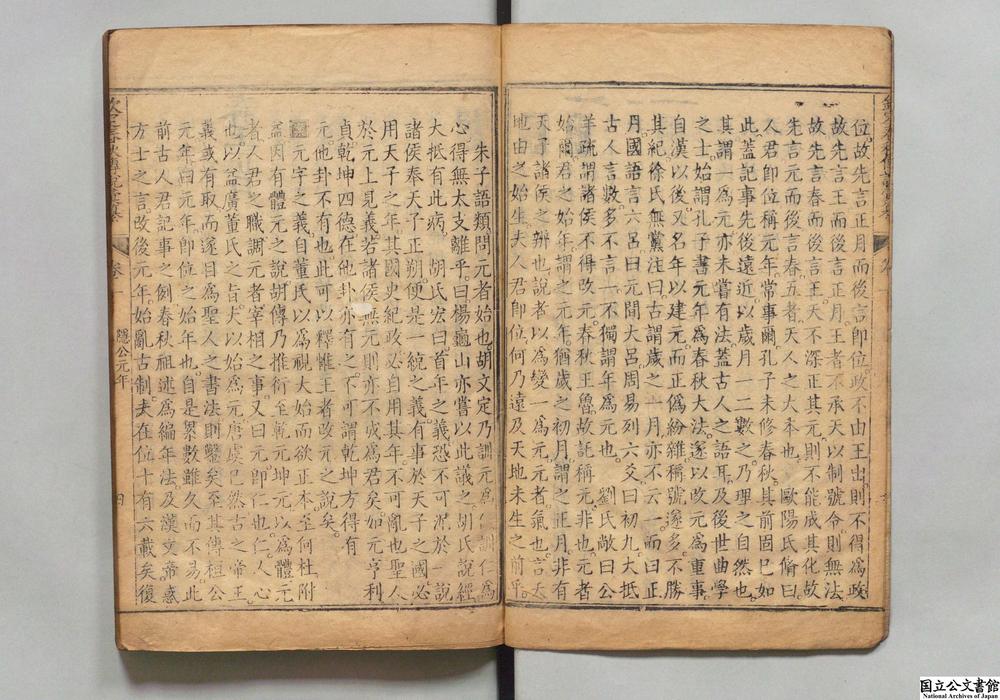 位故先言正月而後言即位政不由王出則不得爲政
故先言王而後言正月王者不承天以制號令則無法
故先言春而後言王天不深正其元則不能成其化故
先言元而後言春五者天人之大本也　歐陽氏脩曰
人君即位稱元年常事爾孔子未修春秋其前固已如
此蓋記事先後遠近以歲月一二數之乃理之自然也
其謂一爲元亦未嘗有法蓋古人之語耳及後世曲學
之士始謂孔子書元年爲春秋大法遂以改元爲重事
自漢以後又名年以建元而正僞紛雜稱號遂多不勝
其紀徐氏無黨注曰古謂歲之一月亦不云一而曰正
月國語言六呂曰元間大呂周易列六爻曰初九大抵
古人言數多不言一不獨謂年爲元也　劉氏敞曰公
羊疏謂諸侯不得改元春秋王魯故託稱元非也元者
始爾君之始年謂之元年猶歲之初月謂之正月非有
天子諸侯之辨也說者以爲變一爲元元者氣也言天
地由之始生夫人君即位何乃遠及天地未生之前乎
朱子語類問元者始也胡文定乃訓元爲仁訓仁爲
心得無太支離乎曰楊龜山亦嘗以此議之胡氏說經
大抵有此病　胡氏宏曰首年之義恐不可泥於一說
諸侯奉天子正朔便是一統之義有事於天子之國必
用天子之年其國史紀政必自用其年不可亂也聖人
於元上見義若諸侯無元則亦不成爲君矣如元亨利
貞乾坤四德在他卦亦有之不可謂乾坤方得有
元他卦不有也此可以釋惟王者改元之說矣
元字之義自董氏以爲視大始而欲正本至何杜附
益因有體元之說胡傳乃推衍至乾元坤元以爲體元
者人君之職調元者宰相之事又曰元即仁也仁人心
也以益廣董氏之旨夫以始爲元唐虞已然古之帝王
義或有取而遂目爲聖人之書法則鑿矣至其傳桓公
元年曰元年即位之始年也自是累數雖久而不易此
前古人君記事之例春秋祖述爲編年法及漢文帝惑
方士之言改後元年始亂古制夫在位十有六載矣復
卷一
隱公元年
四
国立公文書館
National Archives of Japan